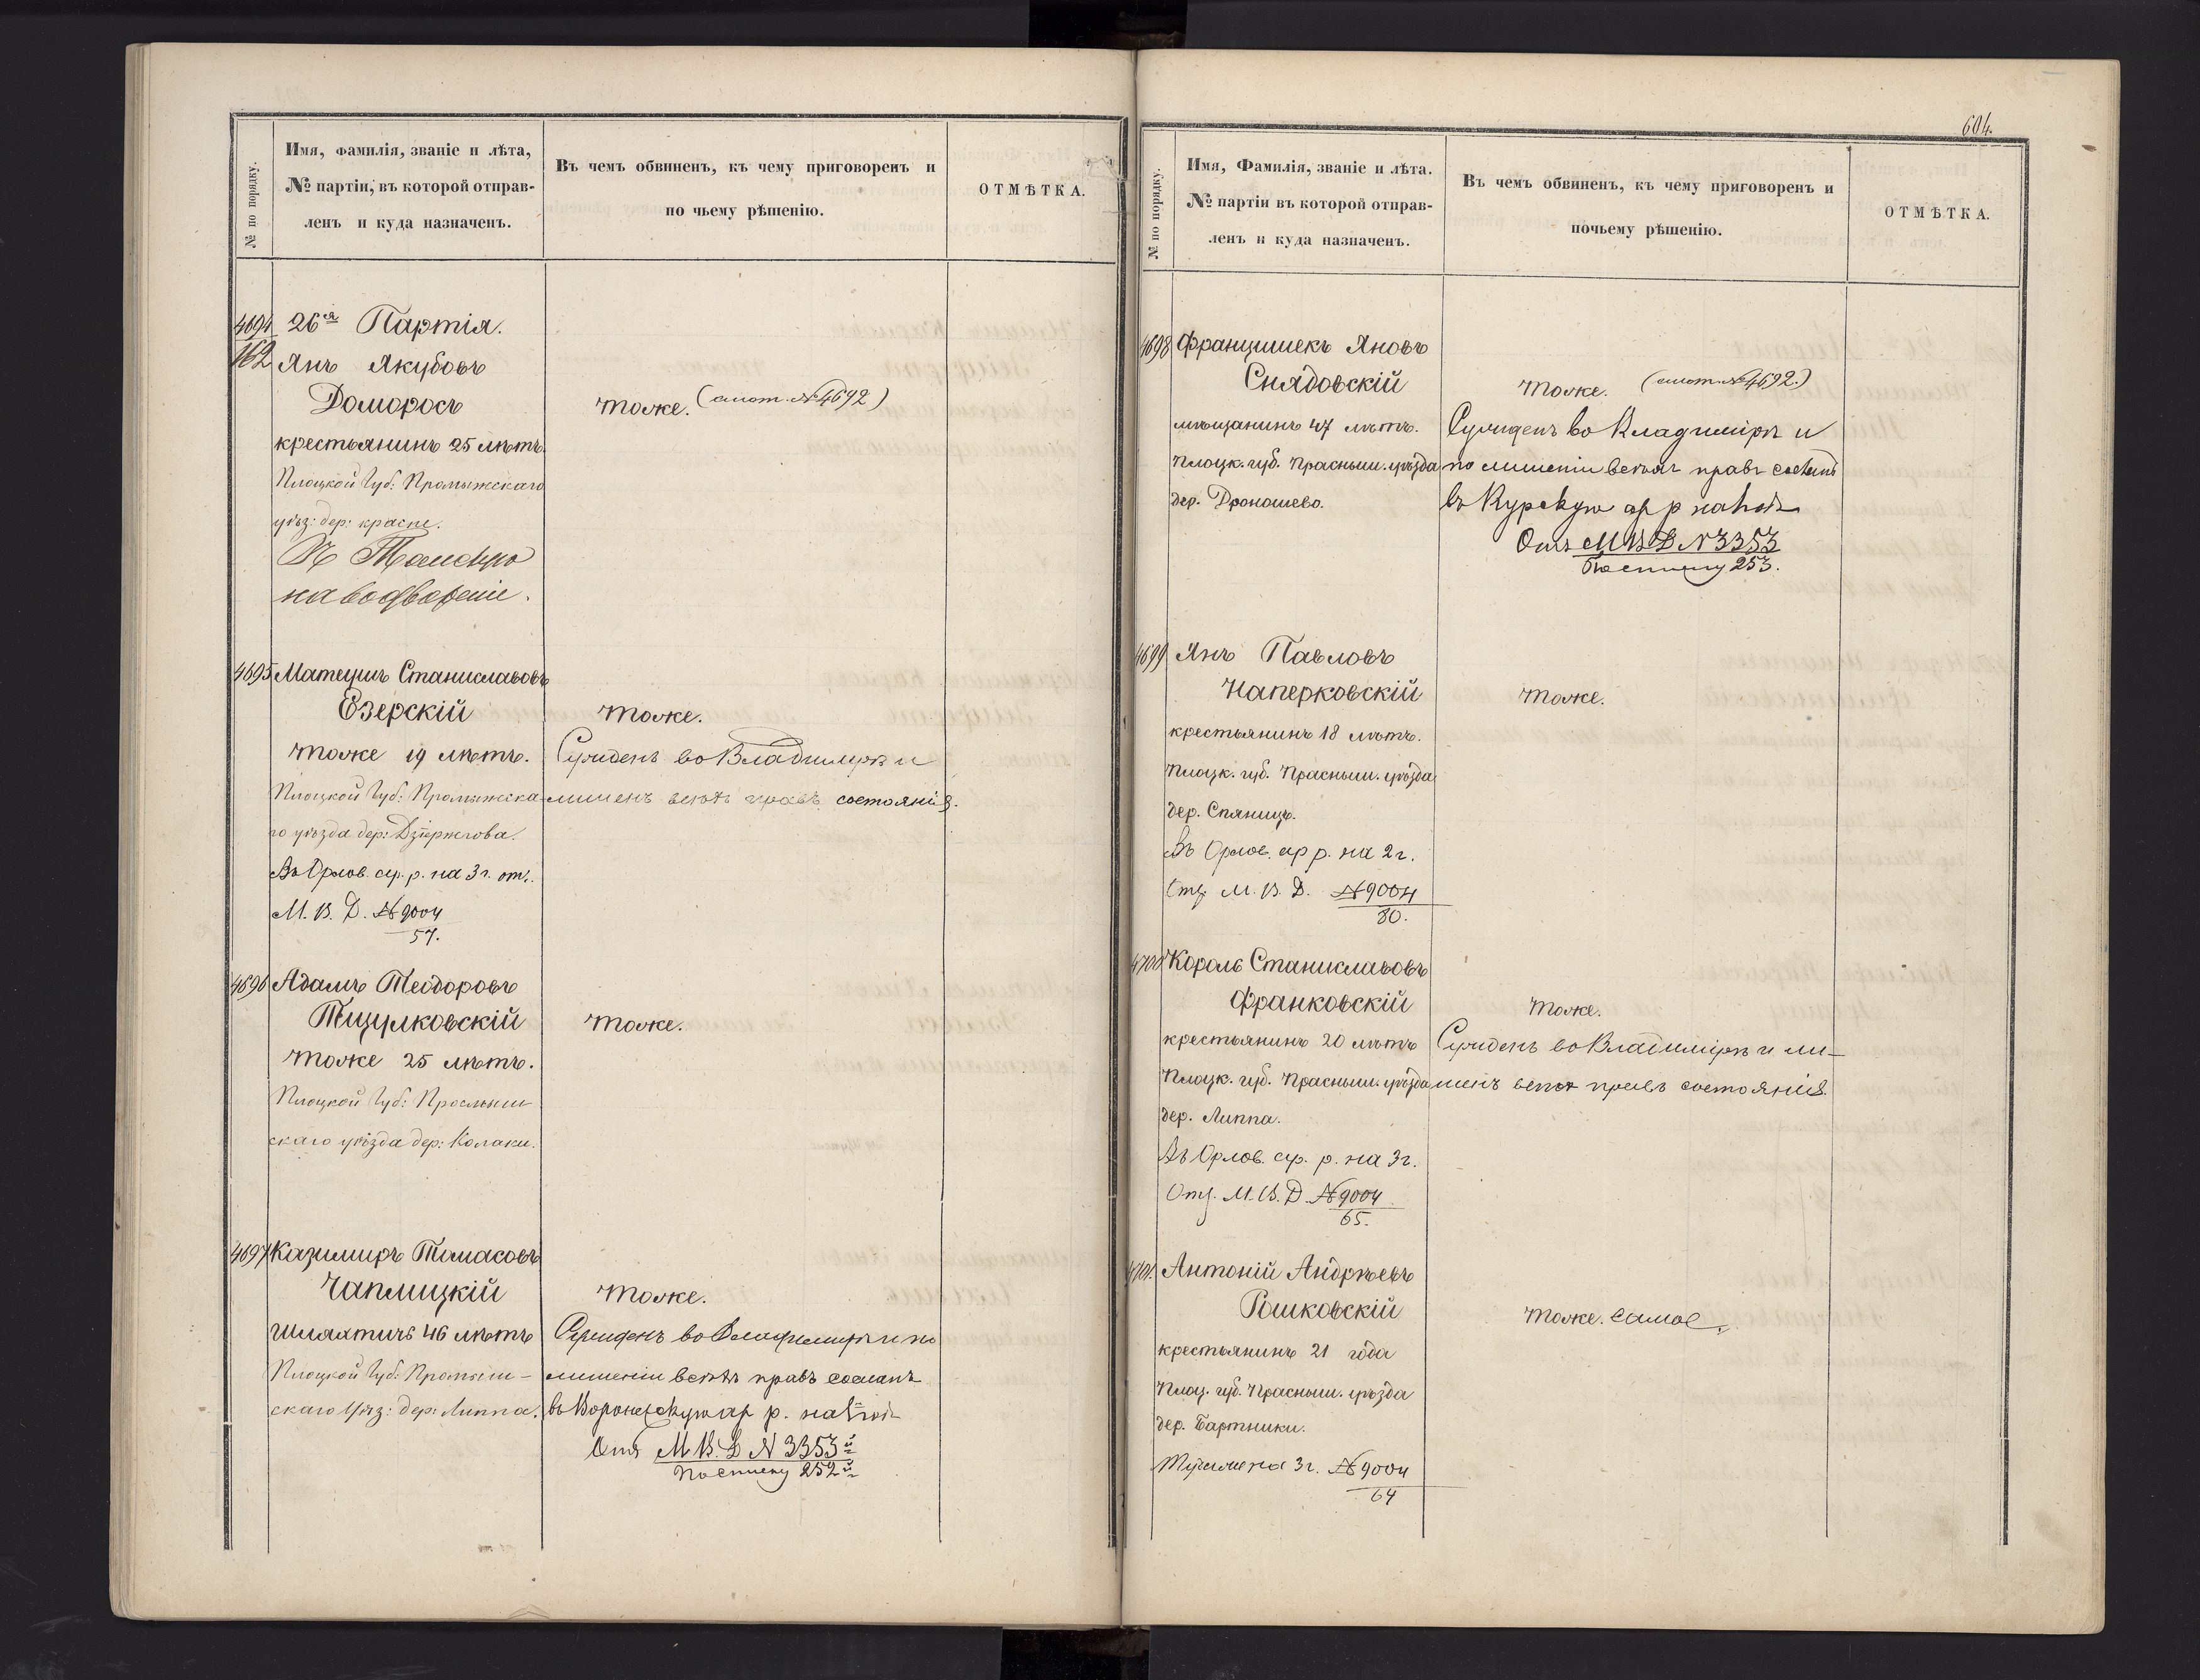 № по порядку.
Имя, фамилія, званіе и лѣта,
№ партіи, въ которой отправ-
ленъ и куда назначенъ.
Въ чемъ обвиненъ, къ чему приговоренъ и
по чьему рѣшенію.
ОТМѢТКА.
4694
162
26я Партія.
Янъ Якубовъ
Доморосъ
крестьянинъ 25 лѣтъ.
Плоцкой Губ:
уѣз: дер: красне.
на водвореніе.
тоже. (смот. № 4692)
4695 Матеушъ Станиславовъ
Езерскій
тоже 19 лѣтъ.
Плоцкой Губ:
го уѣзда дер: Дзержгова.
Въ Орлов. ар. р. на 3 г. от.
М. В. Д. № 9004
57.
тоже.
Сужденъ во Владимирѣ и
лишенъ всѣхъ правъ состоянія.
4696 Адамъ Теодоровъ
Тщулковскій
тоже 25 лѣтъ.
Плоцкой Губ: Прасныш
скаго уѣзда дер: Колаки.
тоже.
4697 Казимиръ Томасовъ
Чаплицкій
шляхтичъ 46 лѣтъ
Плоцкой Губ:
скаго Уѣз: дер: Липпа.
тоже.
Сужденъ во Владимирѣ и по
лишеніи всѣхъ правъ сосланъ
въ Воронежскую ар р.
Отн М В. Д N 3353й
По списку 252й
604.
№ по порядку.
Имя, Фамилія, званіе и лѣта.
№ партіи въ которой отправ-
ленъ и куда назначенъ.
Въ чемъ обвиненъ, къ чему приговоренъ и
почьему рѣшенію.
ОТМѢТКА.
4698 Францишекъ Яновъ
Снядовскій
мѣщанинъ 47 лѣтъ.
Плоцк. губ. Прасныш. уѣзда
дер. Дроношево.
тоже. (смот. № 4692.)
Сужденъ во Владимірѣ и
по лишеніи всѣхъ правъ
въ Курскую ар р
Отн М В Д N 3353
По списку 253.
4699 Янъ Павловъ
Наперковскій
крестьянинъ 18 лѣтъ.
Плоцк. губ. Прасныш. уѣзда
дер. Спяницъ.
Въ Орлов. ар р. на 2 г.
Отн. М. В. Д. № 9004
80.
тоже.
4700 Кароль Станиславовъ
Франковскій
крестьянинъ 20 лѣтъ
Плоцк. губ. Прасныш. уѣзда
дер. Липпа.
Въ Орлов. ар. р. на 3 г.
Отн. М. В. Д. № 9004
65.
тоже.
Сужденъ во Владимірѣ и ли-
шенъ всѣхъ правъ состоянія.
4701. Антоній Андрѣевъ
Рошковскій
крестьянинъ 21 года
Плоц. губ. Прасныш. уѣзда
дер. Бартники.
на 3 г. № 9004
64
тоже. самое.